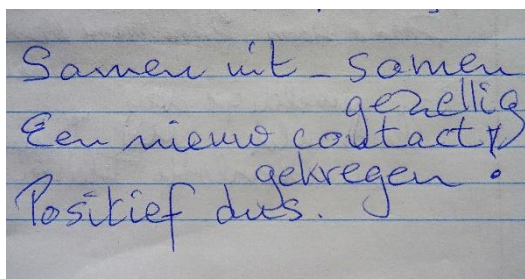 Samen uit - samen
gezellig
Een nieuw contact
gekregen !
Positief dus.